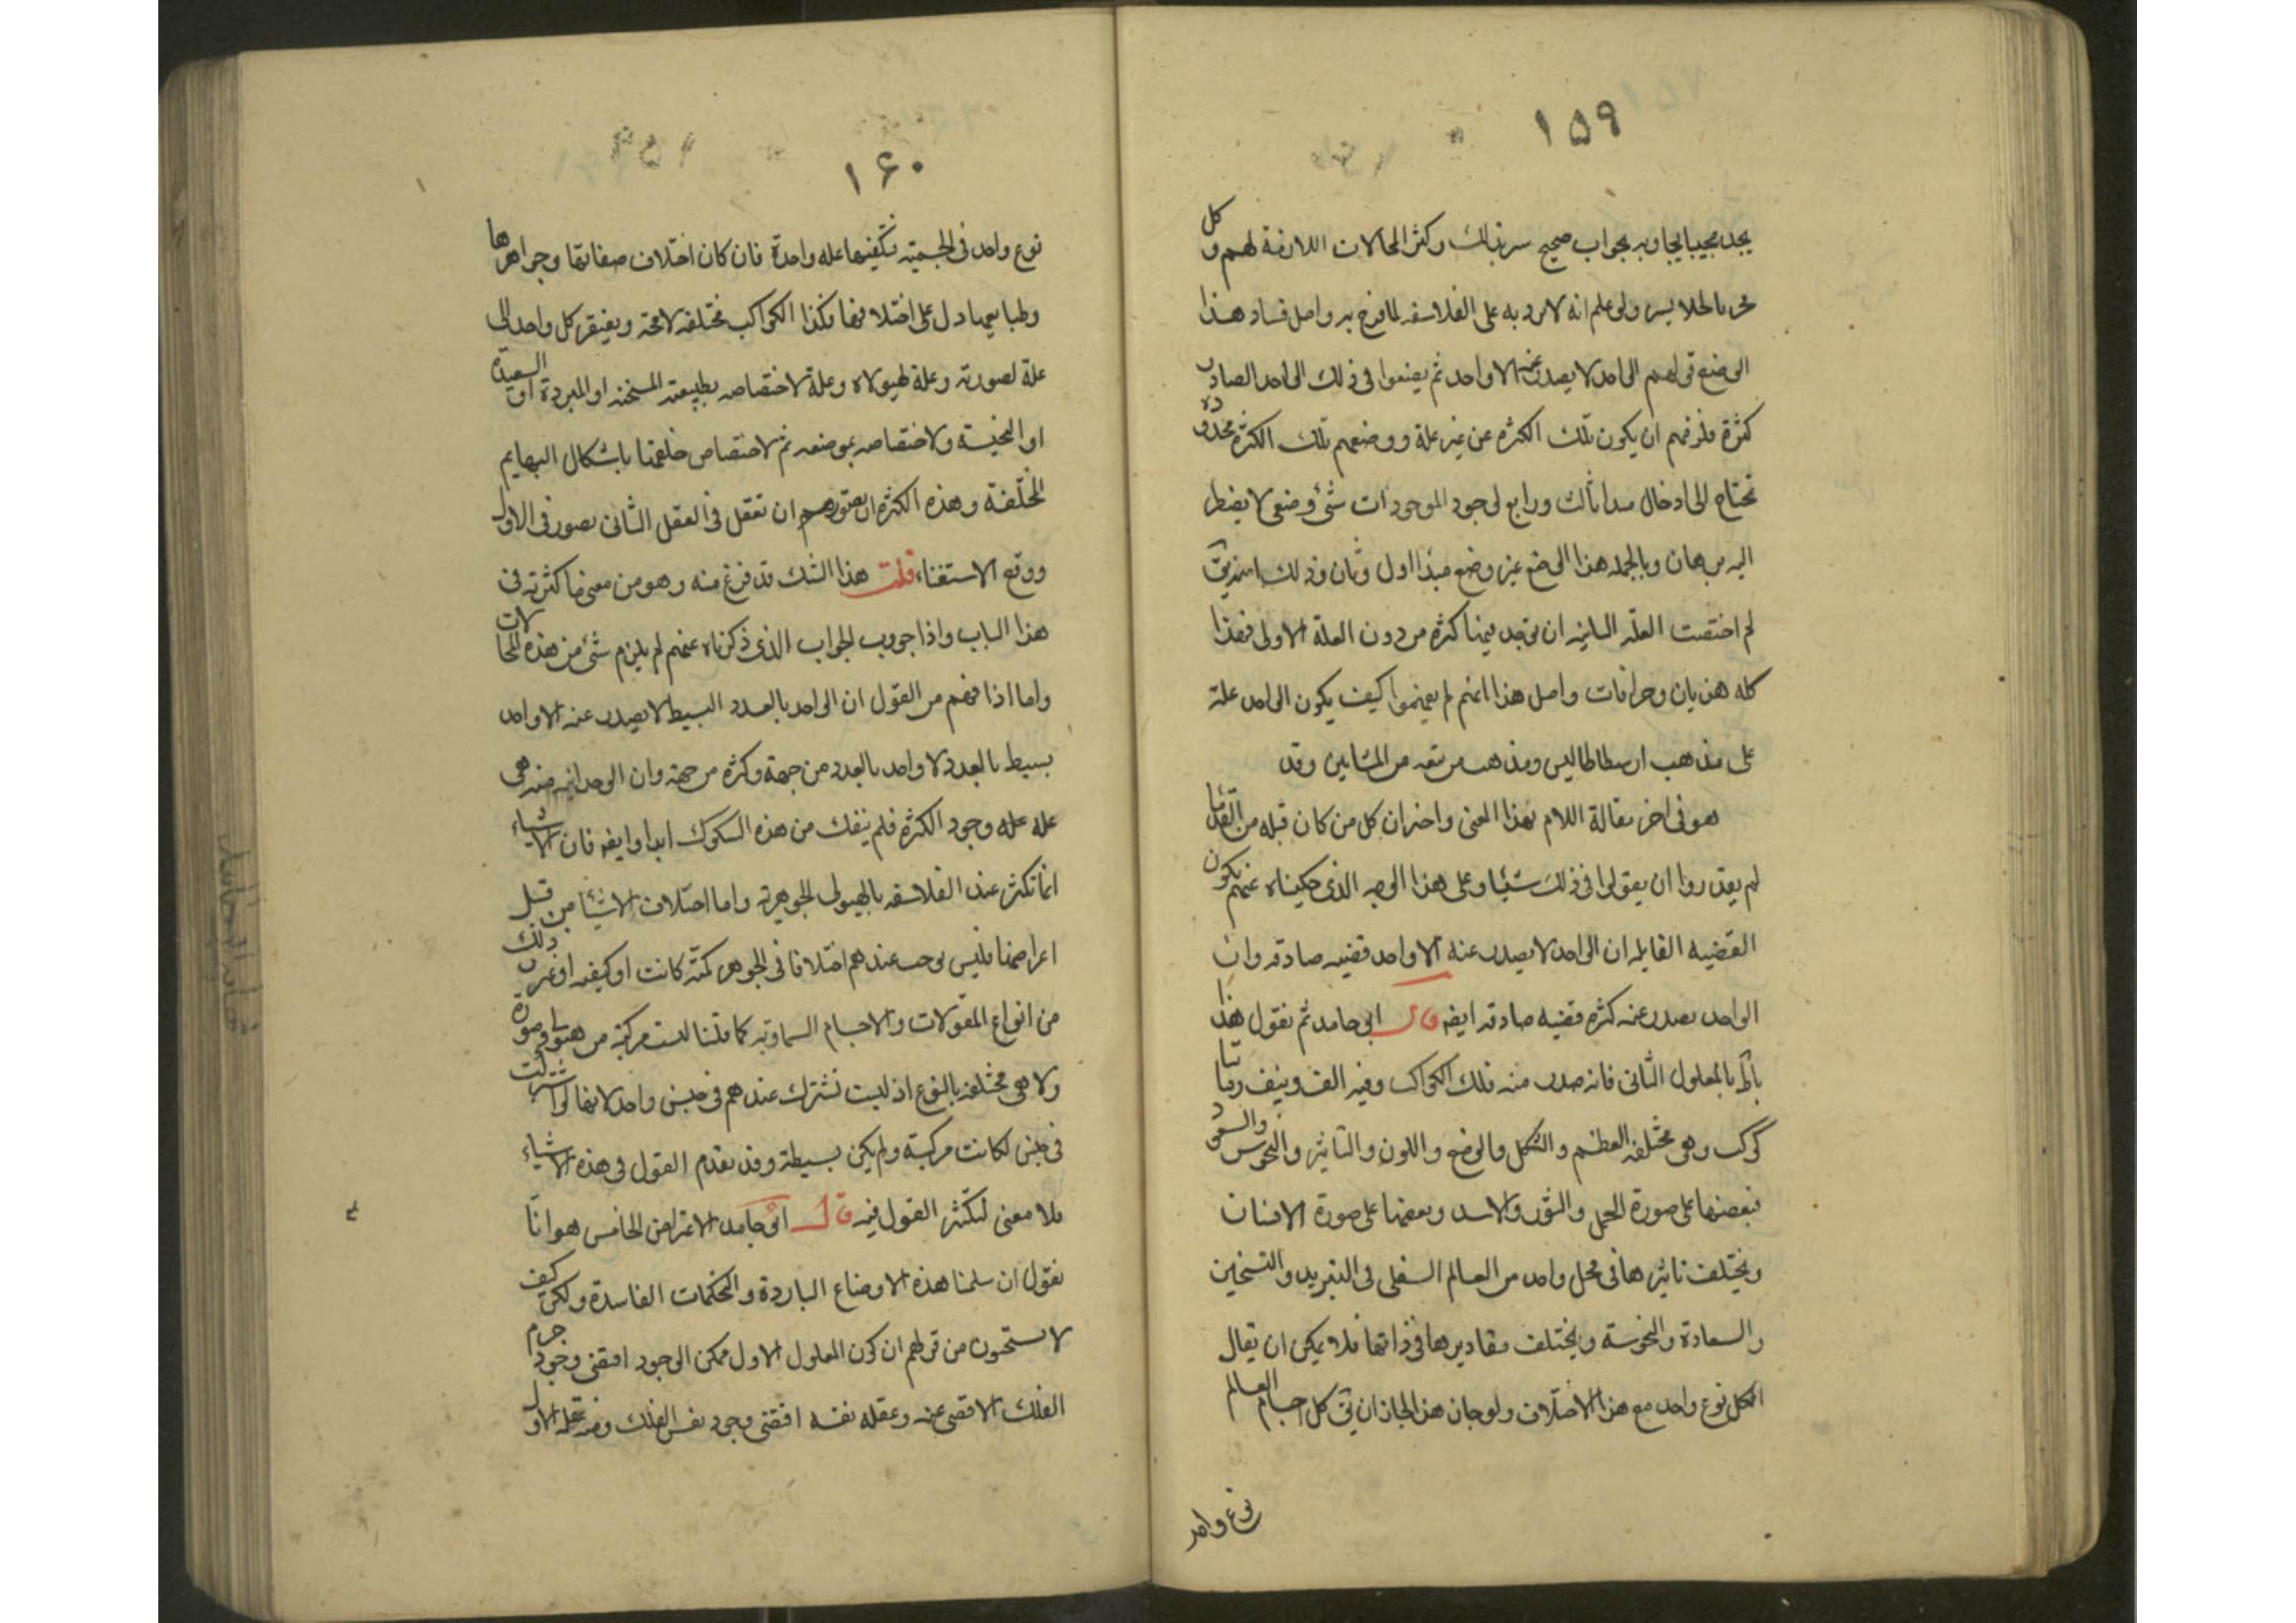 ١٥٩
يجد مجيبا يجاوبه بجواب صحيح سر بذلك وكثر المحالات اللازمة لهم وكل
مجر بالخلا يسر ولو علم انه لا يرد به على الفلاسفه لما فرح به واصل فساد هذا
الوضع قولهم الواحد لا يصدر عنه الا واحد ثم يضعوا فى ذلك الواحد الصادر
كثرة فلزمهم ان يكون تلك الكثره عن غير علة ووضعهم تلك الكثرة محدوده
تحتاج الى ادخال مبدا ثالث ورابع لوجود الموجودات شئ وضعى لا يضطر
اليه برهان وبالجمله هذا الوضع غير وضع مبدا اول وثان وذلك
لم اختصت العلّه الثانيه ان يوجد فيها كثره من دون العلة الاولى فهذا
كله هذيان وخرافات واصل هذا انهم لم يفهموا كيف يكون الواحد علة
على مذهب ارسطاطاليس ومذهب من تبعه من المشايين وقد
هو فى اخر مقالة اللام بهذا المعنى واخبر ان كل من كان قبله من القدما
لم يقدروا ان يقولوا فى ذلك شيئا وعلى هذا الوجه الذى حكيناه عنهم يكون
القضيه القايله ان الواحد لا يصدر عنه الا واحد قضيه صادقه وان
الواحد يصدر عنه كثره قضيه صادقه ايضه قال ابى حامد ثم نقول هذا
باطل بالمعلول الثانى فانه صدر منه فلك الكواكب وفيه الف ونيف ومايتا
كوكب وهى مختلفه العظم والشكل والوضع واللون والتاثير والنحوس والسعود
فبعضها على صورة الحمل والثور والاسد وبعضها على صورة الانسان
ويختلف تاثيرها فى محل واحد من العالم السفلى فى التبريد والتسخين
والسعادة والنحوسة ويختلف مقاديرها فى ذاتها فلا يمكن ان يقال
الكل نوع واحد مع هذا الاختلاف ولو جاز هذا لجاز ان يق كل اجسام العالم
نوع واحد
١٦٠
نوع واحد فى الجسميه فتكفيها عله واحدة فان كان اختلاف صفاتها وجواهرها
وطبايعها دل على اختلافها فكذا الكواكب مختلفه لا محة ويفتقر كل واحد الى
علة لصورته وعلة لهيولاه وعلة لاختصاصه بطبيعته المسخنه او المبردة او السعيدة
او النحيسة ولاختصاصه بموضعه ثم لاختصاص خلقتها باشكال البهايم
المختلفة وهذه الكثره ان تصور ان تعقل فى العقل الثانى تصور فى الاول
ووقع الاستغناء قلت هذا الشك قد فرغ منه وهو من معنى ما كثرته فى
هذا الباب واذا جووب الجواب الذى ذكرناه عنهم لم يلزم شئ من هذه المحالات
واما اذا فهم من القول ان الواحد بالعدد البسيط لا يصدر عنه الا واحد
بسيط بالعدد لا واحد بالعدد من جهة وكثره من جهة وان الوحدانيه منه هى
عله عله وجود الكثره فلم ينفك من هذه الشكوك ابدا وايضه فان الاشياء
انما تكثر عند الفلاسفه بالهيولى الجوهرية واما اختلاف الاشيئا من قبل
اعراضها فليس يوجب عندهم اختلافا فى الجوهر كمّيّة كانت او كيفيه او غير ذلك
من انواع المقولات والاجسام السماويّه كما قلنا ليست مركبة من هيولى وصورة
ولا هى مختلفه بالنوع اذ ليست تشترك عندهم فى جنس واحد لانها لو اشتركت
فى جنس لكانت مركبة ولم يكن بسيطة وقد تقدم القول فى هذه الاشياء
فلا معنى لتكثر القول فيه قال ابى حامد الاعتراض الخامس هو انّا
نقول ان سلمنا هذه الاوضاع الباردة والتحكمات الفاسدة ولكن كيف
لا تستحيون من قولهم ان كون المعلول الاول ممكن الوجود اقتضى وجود جرم
الفلك الاقصى عنه وعقله نفسه اقتضى وجود نفس الفلك ومنه عقله الاول